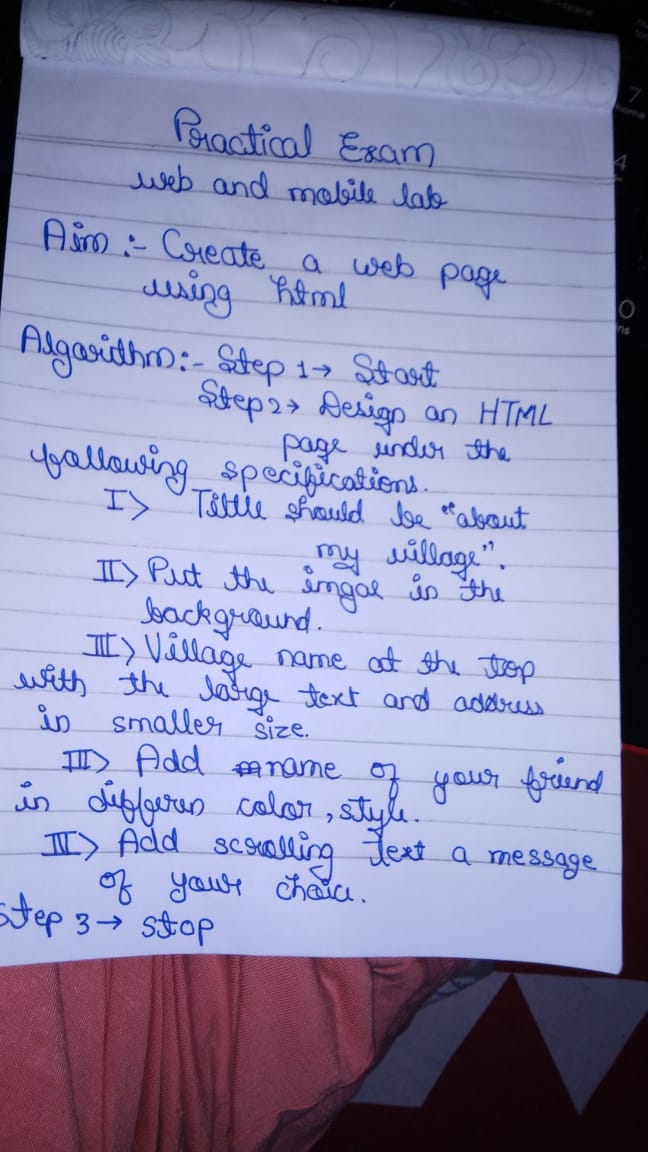 Practical Exam
web and mobile lab
Aim :- Create a web page
using html
Algorithm:- Step 1→ Start
Step 2→ Design an HTML
page under the
following specifications.
I> Tittle should be "about
my village".
II> Put the imgae in the
background.
III> Village name at the top
with the large text and address
in smaller size.
III> Add name of your friend
in differen color, style.
III> Add scrolling text a message
of your choice.
Step 3→ stop
7
home
4
0
ins